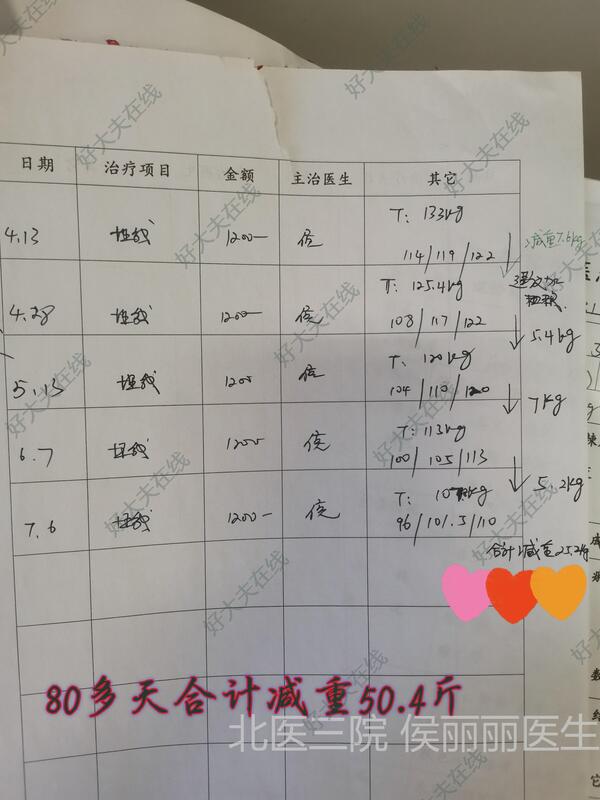 日期 治疗项目 金额 主治医生 其它
4.13 埋线 1200- 侯 T: 133kg
114/119/122
↓ 减重7.6kg
4.28 埋线 1200- 侯 T: 125.4kg
108/117/122
↓ 5.4kg
5.13 埋线 1200 侯 T: 120kg
104/110/120
↓ 7kg
6.7 埋线 1200 侯 T: 113kg
100/105/113
↓ 5.2kg
7.6 埋线 1200- 侯
96/101.5/110
合计减重25.2kg
80多天合计减重50.4斤
北医三院 侯丽丽医生
好大夫在线